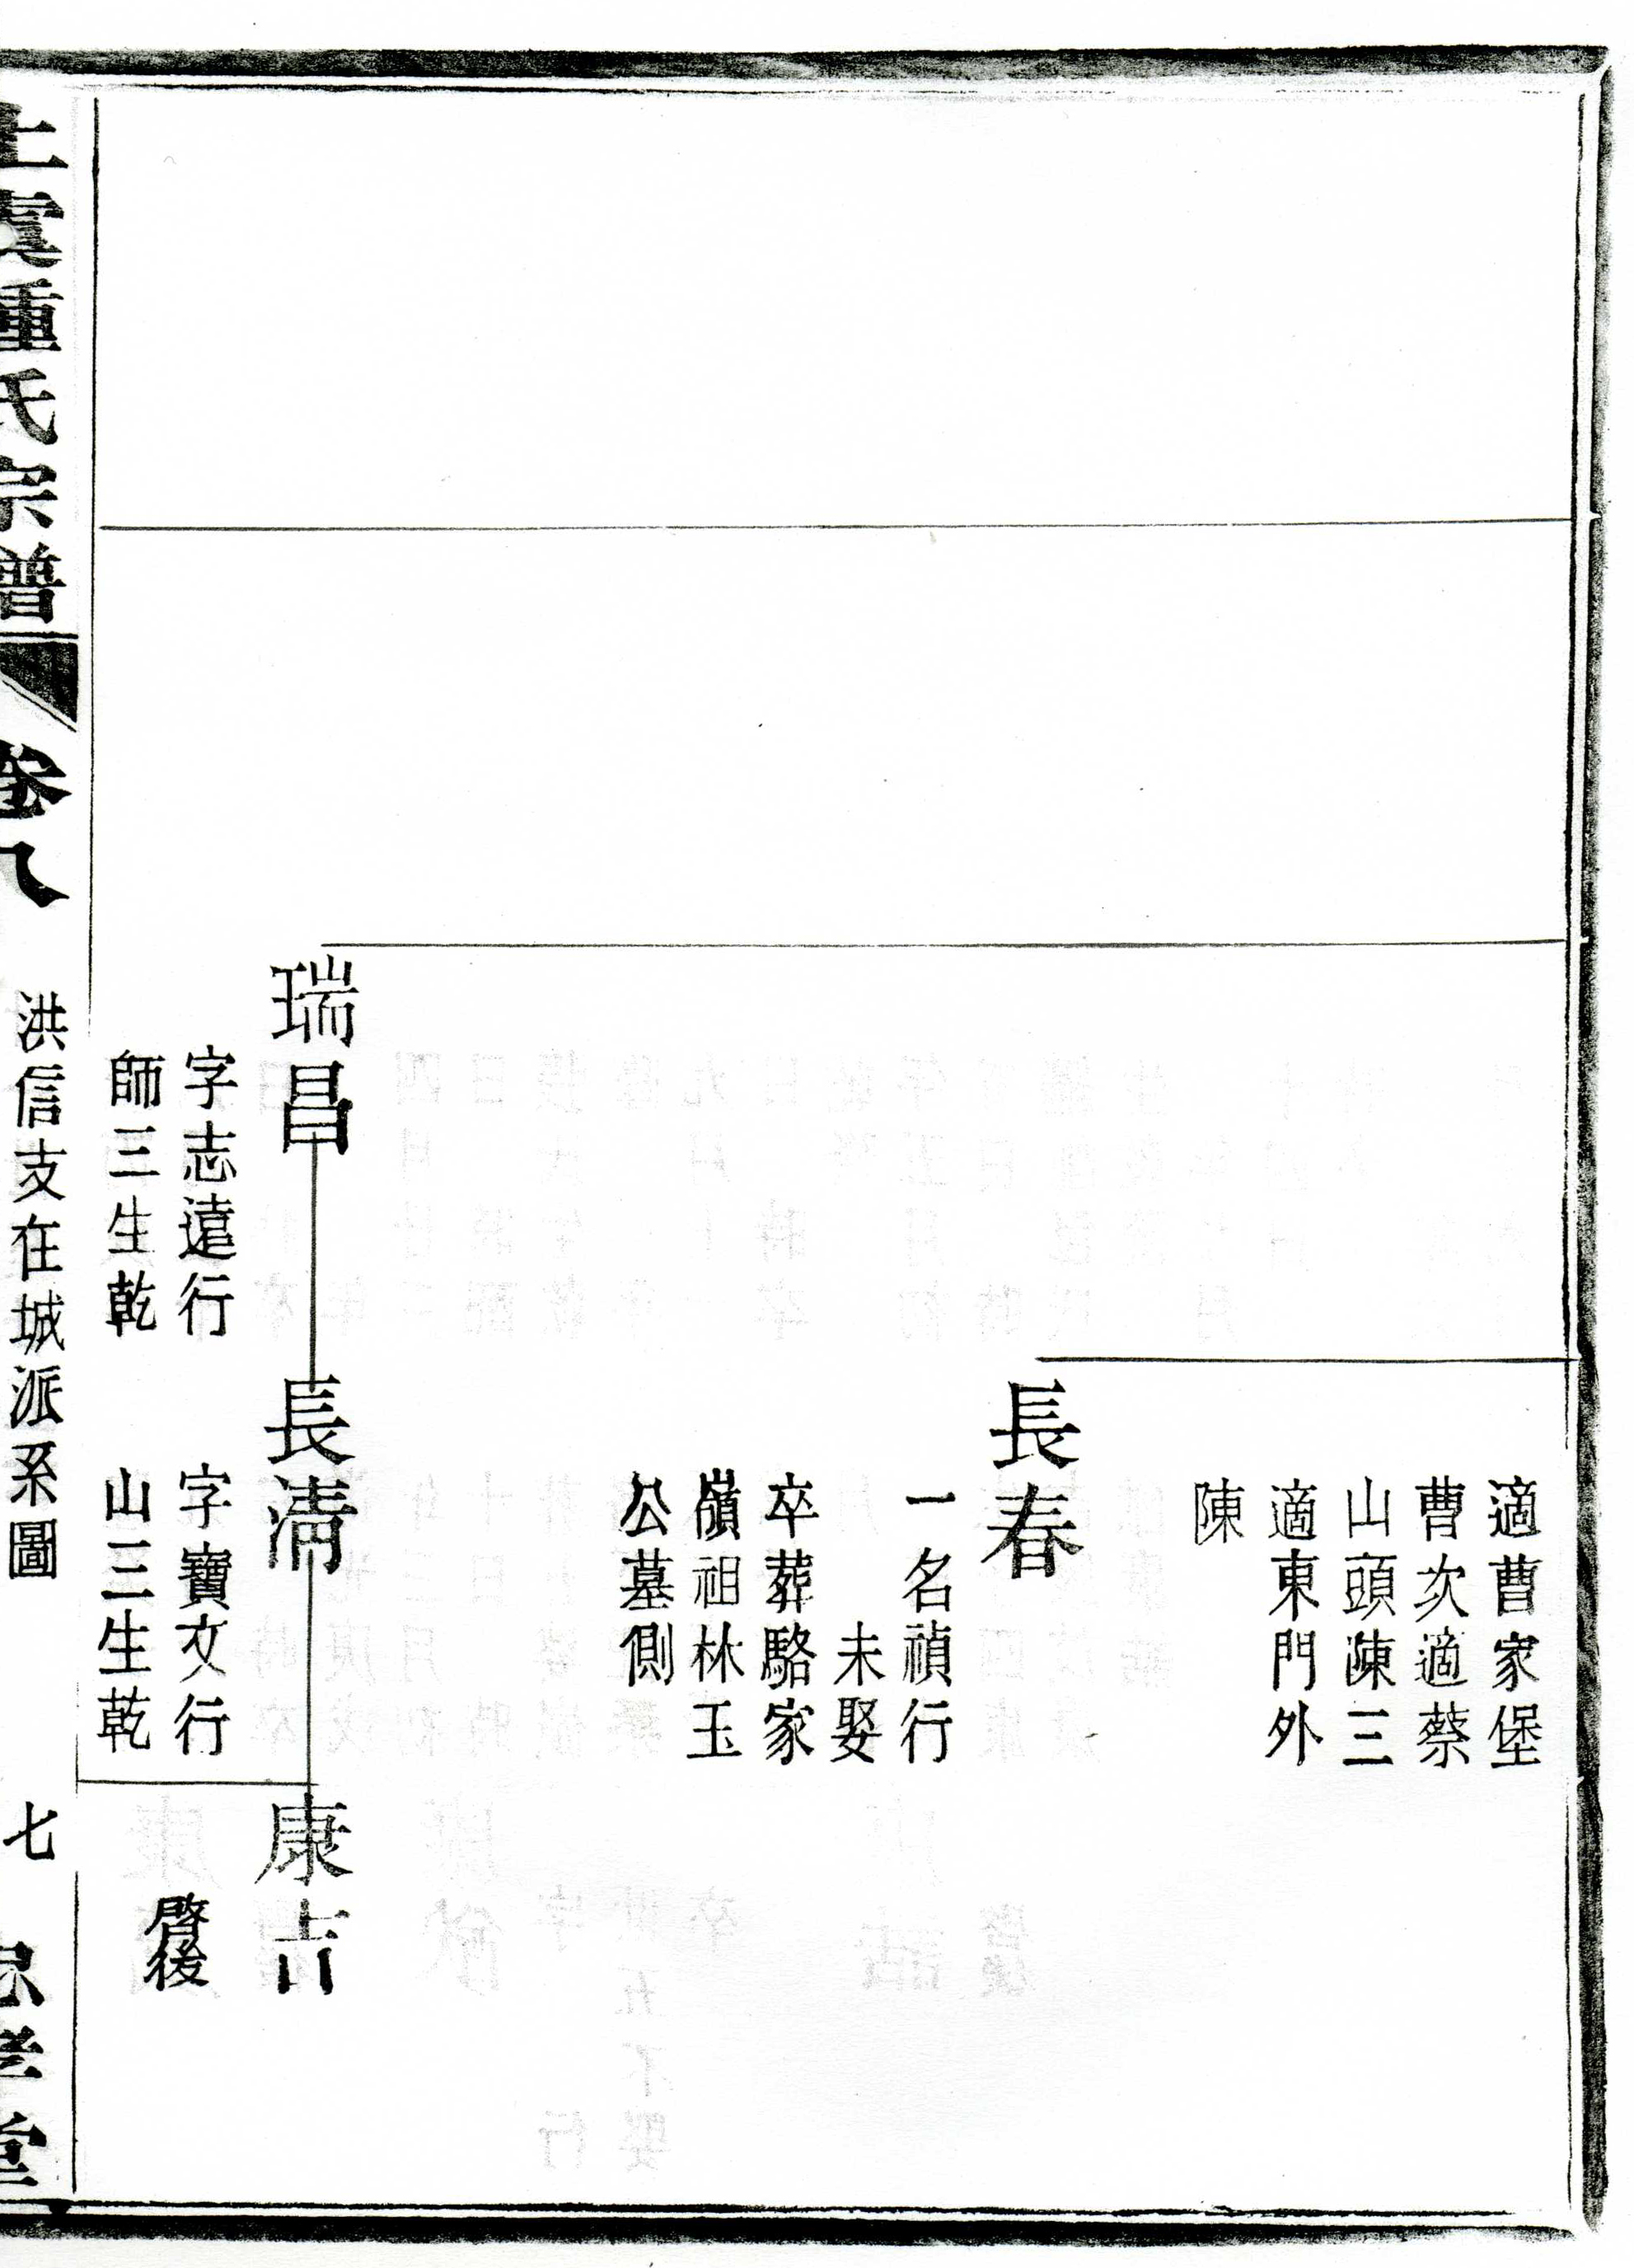 適曹家堡
曹次適蔡
山頭陳三
適東門外
陳
長春
一名禎行
未娶
卒葬駱家
嶺祖林玉
公墓側
瑞昌
字志遠行
師三生乾
長淸
字寶文行
山三生乾
康吉
啓後
上虞氏宗譜
卷八
洪信支在城派系圖
七
忠孝堂